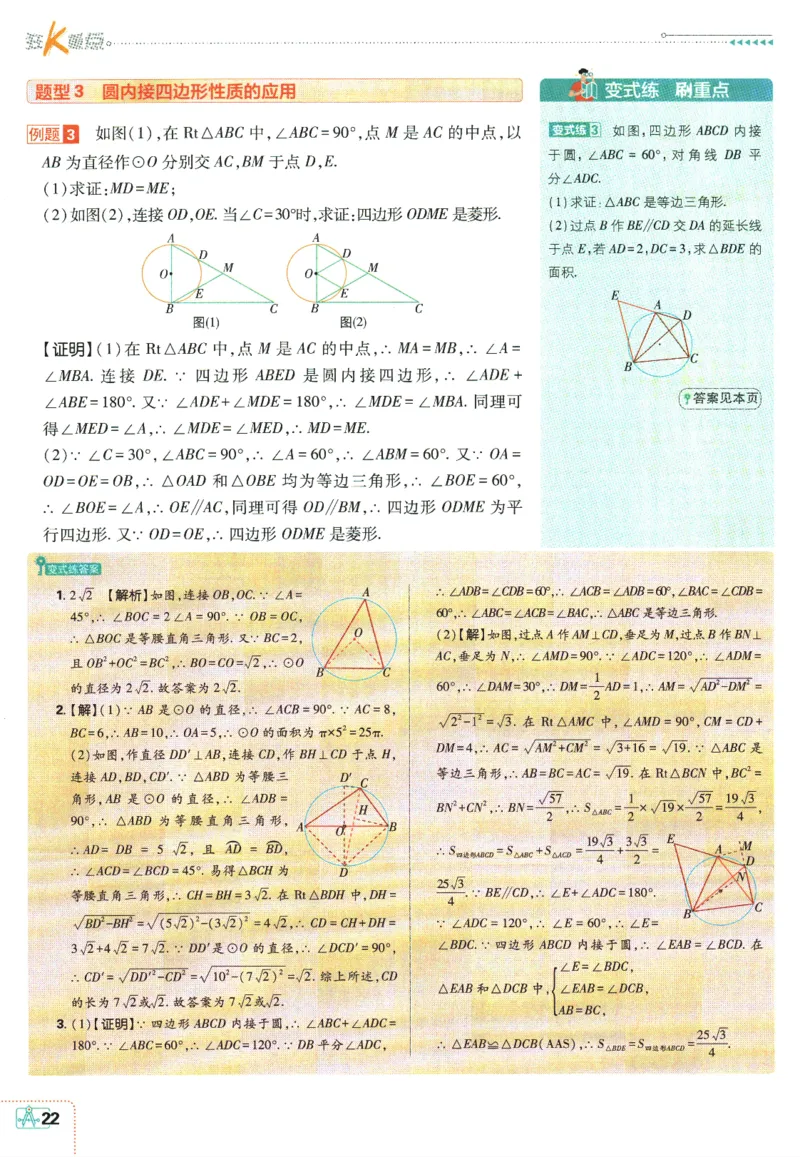 题型3 圆内接四边形性质的应用
例题3 如图(1),在 Rt△ABC 中,∠ABC=90°,点 M 是 AC 的中点,以
AB 为直径作⊙O 分别交 AC,BM 于点 D,E.
(1)求证:MD=ME;
(2)如图(2),连接 OD,OE. 当∠C=30°时,求证:四边形 ODME 是菱形.
A
D
M
O
E
B
C
图(1)
A
D
M
O
E
B
C
图(2)
【证明】(1)在 Rt△ABC 中,点 M 是 AC 的中点,∴ MA=MB,∴ ∠A=
∠MBA. 连接 DE. ∵ 四边形 ABED 是圆内接四边形,∴ ∠ADE+
∠ABE=180°. 又∵ ∠ADE+∠MDE=180°,∴ ∠MDE=∠MBA. 同理可
得∠MED=∠A,∴ ∠MDE=∠MED,∴ MD=ME.
(2)∵ ∠C=30°,∠ABC=90°,∴ ∠A=60°,∴ ∠ABM=60°. 又∵ OA=
OD=OE=OB,∴ △OAD 和△OBE 均为等边三角形,∴ ∠BOE=60°,
∴ ∠BOE=∠A,∴ OE∥AC,同理可得 OD∥BM,∴ 四边形 ODME 为平
行四边形. 又∵ OD=OE,∴ 四边形 ODME 是菱形.
变式练 刷重点
变式练3 如图,四边形 ABCD 内接
于圆,∠ABC=60°,对角线 DB 平
分∠ADC.
(1)求证:△ABC 是等边三角形.
(2)过点 B 作 BE∥CD 交 DA 的延长线
于点 E,若 AD=2,DC=3,求△BDE 的
面积.
E
A
D
B
C
答案见本页
变式练答案
1. 2√2 【解析】如图,连接 OB,OC. ∵ ∠A=
45°,∴ ∠BOC=2∠A=90°. ∵ OB=OC,
∴ △BOC 是等腰直角三角形. 又∵ BC=2,
且 OB²+OC²=BC²,∴ BO=CO=√2,∴ ⊙O
的直径为 2√2. 故答案为 2√2.
A
O
B
C
2.【解】(1)∵ AB 是⊙O 的直径,∴ ∠ACB=90°. ∵ AC=8,
BC=6,∴ AB=10,∴ OA=5,∴ ⊙O 的面积为 π×5²=25π.
(2)如图,作直径 DD′⊥AB,连接 CD,作 BH⊥CD 于点 H,
连接 AD,BD,CD′. ∵ △ABD 为等腰三
角形,AB 是⊙O 的直径,∴ ∠ADB=
90°,∴ △ABD 为等腰直角三角形,
∴ AD=DB=5√2,且 A͡D=B͡D,
∴ ∠ACD=∠BCD=45°. 易得△BCH 为
等腰直角三角形,∴ CH=BH=3√2. 在 Rt△BDH 中,DH=
√(BD²-BH²)=√((5√2)²-(3√2)²)=4√2,∴ CD=CH+DH=
3√2+4√2=7√2. ∵ DD′是⊙O 的直径,∴ ∠DCD′=90°,
∴ CD′=√(DD′²-CD²)=√(10²-(7√2)²)=√2. 综上所述,CD
的长为 7√2或√2. 故答案为 7√2或√2.
D′
C
H
A
O
B
D
3. (1)【证明】∵ 四边形 ABCD 内接于圆,∴ ∠ABC+∠ADC=
180°. ∵ ∠ABC=60°,∴ ∠ADC=120°. ∵ DB 平分∠ADC,
∴ ∠ADB=∠CDB=60°,∴ ∠ACB=∠ADB=60°,∠BAC=∠CDB=
60°,∴ ∠ABC=∠ACB=∠BAC,∴ △ABC 是等边三角形.
(2)【解】如图,过点 A 作 AM⊥CD,垂足为 M,过点 B 作 BN⊥
AC,垂足为 N,∴ ∠AMD=90°. ∵ ∠ADC=120°,∴ ∠ADM=
60°,∴ ∠DAM=30°,∴ DM=1/2 AD=1,∴ AM=√(AD²-DM²)=
√(2²-1²)=√3. 在 Rt△AMC 中,∠AMD=90°,CM=CD+
DM=4,∴ AC=√(AM²+CM²)=√(3+16)=√19. ∵ △ABC 是
等边三角形,∴ AB=BC=AC=√19. 在 Rt△BCN 中,BC²=
BN²+CN²,∴ BN=√57/2,∴ S△ABC=1/2×√19×√57/2=19√3/4,
∴ S四边形ABCD=S△ABC+S△ACD=19√3/4+3√3/2=
25√3/4. ∵ BE∥CD,∴ ∠E+∠ADC=180°.
∵ ∠ADC=120°,∴ ∠E=60°,∴ ∠E=
∠BDC. ∵ 四边形 ABCD 内接于圆,∴ ∠EAB=∠BCD. 在
E
A
M
D
N
B
C
△EAB 和△DCB 中,{∠E=∠BDC,
∠EAB=∠DCB,
AB=BC,
∴ △EAB≌△DCB(AAS),∴ S△BDE=S四边形ABCD=25√3/4.
22